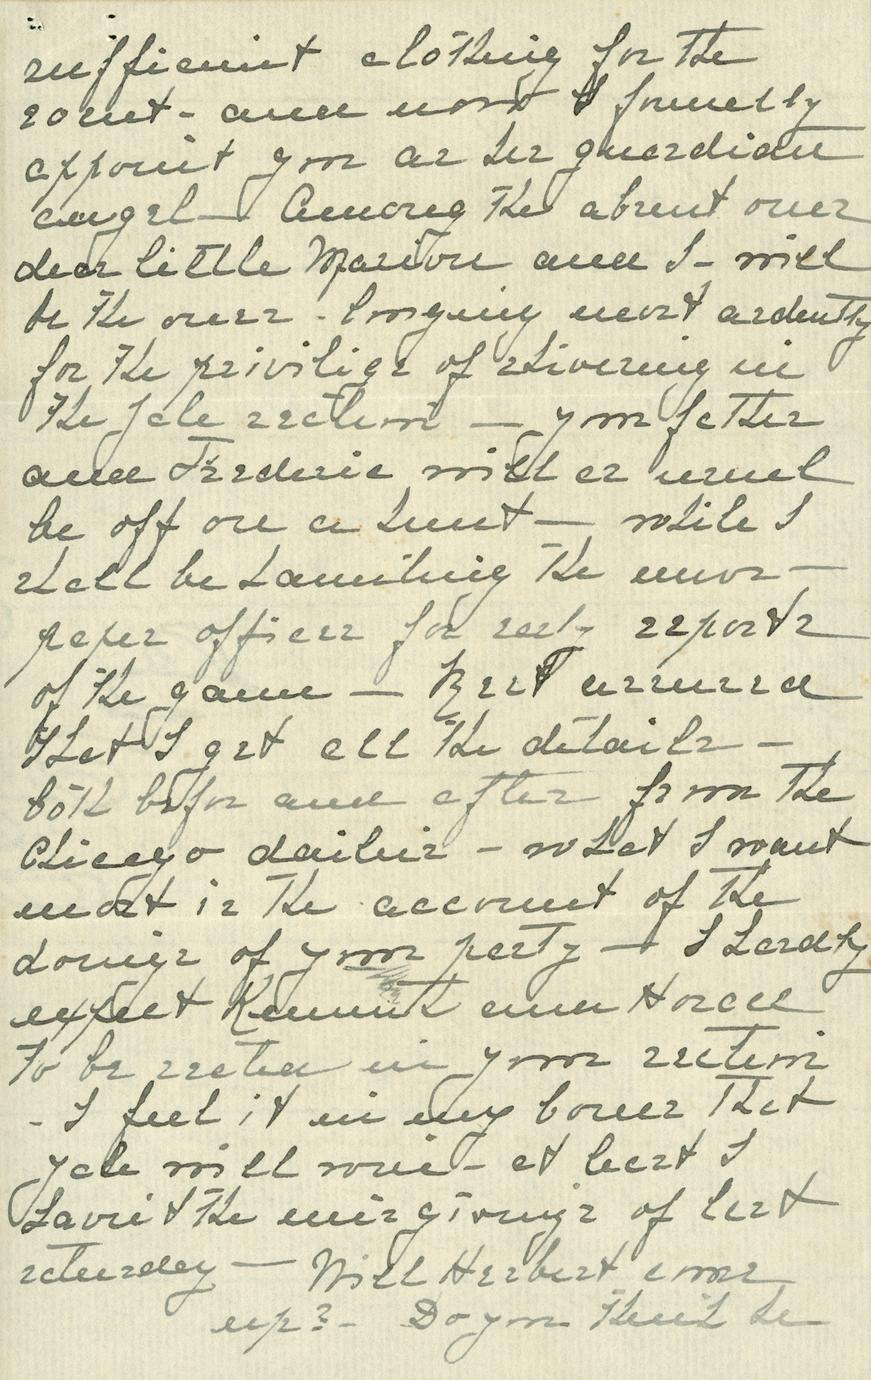 sufficient clothing for the
rout - and now I formally
appoint you as her guardian
angel - Among the absent ones
dear little Marion and I - will
be the ones - longing most ardently
for the privilige of shivering in
the Yale section - your father
and Frederic will as usual
be off on a hunt - while I
shall be haunting the news-
paper offices for early reports
of the game - Rest assured
that I get all the details -
both before and after from the
Chicago dailies - what I want
most is the account of the
doings of your party - I hardly
expect Kenneth and Horace
to be seated in your section
- I feel it in my bones that
Yale will win - at least I
havn't the misgivings of last
saturday - Will Herbert come
up? - Do you think he